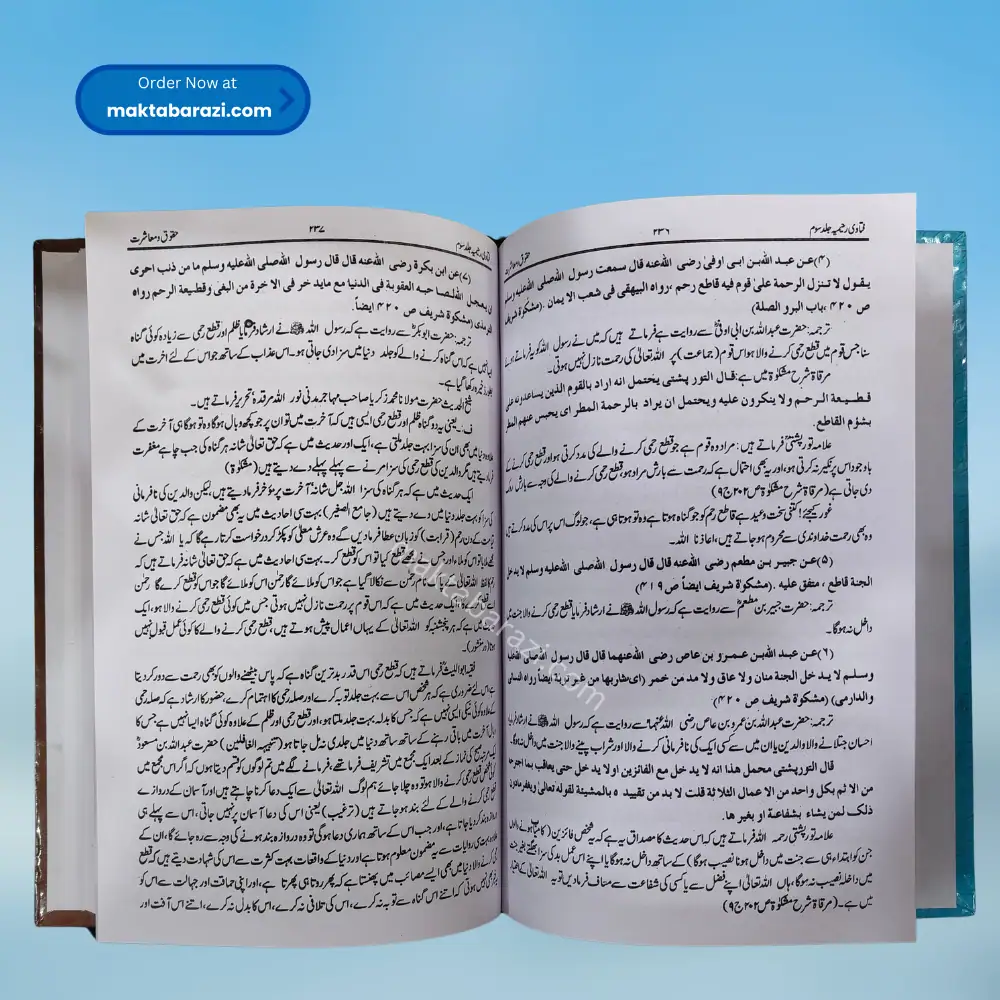 Order Now at
maktabarazi.com
فتاوی رحیمیہ جلد سوم
۲۳۶
حقوق و معاشرت
(۴) عن عبد اللہ بن ابی اوفیٰ رضی اللہ عنه قال سمعت رسول اللہ صلی اللہ علیه وسلم
یقول لا تنزل الرحمة علیٰ قوم فیه قاطع رحم ،رواه البیهقی فی شعب الا یمان .(مشکوٰة شریف
ص ۴۲۰ ،باب البرو الصلة)
ترجمہ: حضرت عبداللہ بن ابی اوفیٰؓ سے روایت ہے فرماتے ہیں کہ میں نے رسول اللہ کو یہ فرماتے ہوئے
سنا جس قوم میں قطع رحمی کرنے والا ہو اس قوم (جماعت) پر اللہ تعالیٰ کی رحمت نازل نہیں ہوتی۔
مرقاة شرح مشکوٰة میں ہے: قال التور پشتی یحتمل انه اراد بالقوم الذین یساعدونه علی
قطیعة الرحم ولا ینکرون علیه ویحتمل ان یراد بالرحمة المطر ای یحبس عنهم المطر
بشؤم القاطع.
علامہ تور پشتیؒ فرماتے ہیں: مراد وہ قوم ہے جو قطع رحمی کرنے والے کی مدد کرتی ہو اور قطع رحمی کرنے کے
باوجود اس پر نکیر نہ کرتی ہو، اور یہ بھی احتمال ہے کہ رحمت سے بارش مراد ہو، قطع رحمی کرنے والے کی وجہ سے بارش روک
دی جاتی ہے (مرقاة شرح مشکوٰة ص ۲۰۲ ج ۹)
غور کیجئے! کتنی سخت وعید ہے قاطع رحم کو جو گناہ ہوتا ہے وہ تو ہوتا ہی ہے، جو لوگ اس پر اس کی مدد کرتے ہیں
وہ بھی رحمت خداوندی سے محروم ہو جاتے ہیں، اعاذنا اللہ۔
(۵) عن جبیر بن مطعم رضی اللہ عنه قال قال رسول اللہ صلی اللہ علیه وسلم لا ید خل
الجنة قاطع ، متفق علیه .(مشکوٰة شریف ایضاً ص ۴۱۹)
ترجمہ: حضرت جبیر بن مطعمؓ سے روایت ہے کہ رسول اللہ ﷺ نے ارشاد فرمایا قطع رحمی کرنے والا جنت میں
داخل نہ ہوگا۔
(۶) عن عبد اللہ بن عمرو بن عاص رضی اللہ عنهما قال قال رسول اللہ صلی اللہ علیه
وسلم لا ید خل الجنة منان ولا عاق ولا مد من خمر (ای شاربها من غیر توبة) ایضاً رواه النسائی
والدارمی (مشکوٰة شریف ص ۴۲۰)
ترجمہ: حضرت عبداللہ بن عمرو بن عاص رضی اللہ عنہما سے روایت ہے کہ رسول اللہ ﷺ نے ارشاد فرمایا
احسان جتلانے والا والدین یا ان میں سے کسی ایک کی نافرمانی کرنے والا اور شراب پینے والا جنت میں داخل نہ ہوگا۔
قال التورپشتی محمل هذا انه لا ید خل مع الفائزین اولا ید خل حتی یعاقب بما اجترحه
من الا ثم بکل واحد من الا عمال الثلاثة قلت لا بد من تقیید ه بالمشیئة لقوله تعالیٰ ویغفر مادون
ذلک لمن یشاء بشفاعة او بغیر ها.
علامہ تور پشتی رحمہ اللہ فرماتے ہیں کہ اس حدیث کا مصداق یہ ہے کہ یہ شخص فائزین (کامیاب ہونے والوں
جن کو ابتداء ہی سے جنت میں داخل ہونا نصیب ہوگا) کے ساتھ داخل نہ ہوگا یا اپنے اس عمل بد کی سزا بھگتے بغیر جنت
میں داخلہ نصیب نہ ہوگا، ہاں اللہ تعالیٰ اپنے فضل سے یا کسی کی شفاعت سے معاف فرما دیں تو یہ اللہ تعالیٰ کے اختیار
میں ہے۔ (مرقاة شرح مشکوٰة ص ۲۰۲ ج ۹)
فتاوی رحیمیہ جلد سوم
۲۳۷
حقوق و معاشرت
(۷) عن ابن بکرة رضی اللہ عنه قال قال رسول اللہ صلی اللہ علیه وسلم ما من ذنب احری
ان یعجل اللہ لصاحبه العقوبة فی الدنیا مع ماید خر فی الا خرة من البغی وقطیعة الرحم رواه
الترمذی (مشکوٰة شریف ص ۴۲۰ ایضاً.
ترجمہ: حضرت ابوبکرؓ سے روایت ہے کہ رسول اللہ ﷺ نے ارشاد فرمایا ظلم اور قطع رحمی سے زیادہ کوئی گناہ
ایسا نہیں ہے کہ اس گناہ کرنے والے کو جلد دنیا میں سزا دی جاتی ہو۔ اس عذاب کے ساتھ جو اس کے لئے آخرت میں
بطور ذخیرہ رکھا گیا ہے۔
شیخ الحدیث حضرت مولانا محمد زکریا صاحب مہاجر مدنی نور اللہ مرقدہ تحریر فرماتے ہیں۔
ف۔ یعنی یہ دو گناہ ظلم اور قطع رحمی ایسے ہیں کہ آخرت میں تو ان پر جو کچھ وبال ہوگا وہ تو ہوگا ہی آخرت کے
علاوہ دنیا میں بھی ان کی سزا بہت جلد ملتی ہے، ایک اور حدیث میں ہے کہ حق تعالیٰ شانہ ہر گناہ کی جب چاہے مغفرت
فرما دیتے ہیں مگر والدین کی قطع رحمی کی سزا مرنے سے پہلے پہلے دے دیتے ہیں (مشکوٰة)
ایک حدیث میں ہے کہ ہر گناہ کی سزا اللہ جل شانہ آخرت پر مؤخر فرما دیتے ہیں، لیکن والدین کی نافرمانی
کی سزا کو بہت جلد دنیا میں دے دیتے ہیں (جامع الصغیر) بہت سی احادیث میں یہ بھی مضمون ہے کہ حق تعالیٰ شانہ
قیامت کے دن رحم (قرابت) کو زبان عطا فرما دیں گے وہ عرش معلی کو پکڑ کر درخواست کرتا رہے گا کہ یا اللہ جس نے
مجھے ملایا تو اس کو ملا اور جس نے مجھے قطع کیا تو اس کو قطع کر۔ بہت سی احادیث میں ہے کہ حق تعالیٰ شانہ فرماتے ہیں کہ
رحم کا لفظ اللہ تعالیٰ کے پاک نام رحمٰن سے نکالا گیا ہے جو اس کو ملائے گا رحمٰن اس کو ملائے گا جو اس کو قطع کرے گا رحمٰن
اسے قطع کرے گا۔ ایک حدیث میں ہے کہ اس قوم پر رحمت نازل نہیں ہوتی جس میں کوئی قطع رحمی کرنے والا ہو، ایک
حدیث میں ہے کہ ہر پنجشنبہ کو اللہ تعالیٰ کے یہاں اعمال پیش ہوتے ہیں، قطع رحمی کرنے والے کا کوئی عمل قبول نہیں
ہوتا (در منثور)۔
فقیہ ابواللیثؒ فرماتے ہیں کہ قطع رحمی اس قدر بدترین گناہ ہے کہ پاس بیٹھنے والوں کو بھی رحمت سے دور کر دیتا
ہے اس لئے ضروری ہے کہ ہر شخص اس سے بہت جلد توبہ کرے اور صلہ رحمی کا اہتمام کرے، حضور کا ارشاد ہے کہ صلہ رحمی
کے علاوہ کوئی نیکی ایسی نہیں ہے کہ جس کا بدلہ بہت جلد ملتا ہو، اور قطع رحمی اور ظلم کے علاوہ کوئی گناہ ایسا نہیں ہے جس کا
وبال آخرت میں باقی رہنے کے ساتھ ساتھ دنیا میں جلدی نہ مل جاتا ہو (تنبیہ الغافلین) حضرت عبداللہ بن مسعودؓ
ایک مرتبہ صبح کی نماز کے بعد ایک مجمع میں تشریف فرما تھے، فرمانے لگے میں تم لوگوں کو قسم دیتا ہوں کہ اگر اس مجمع میں
کوئی شخص قطع رحمی کرنے والا ہو تو وہ چلا جائے ہم لوگ اللہ تعالیٰ سے ایک دعا کرنا چاہتے ہیں اور آسمان کے دروازے
قطع رحمی کرنے والے کے لئے بند ہو جاتے ہیں (ترغیب) یعنی اس کی دعا آسمان پر نہیں جاتی، اس سے پہلے ہی
دروازہ بند کر دیا جاتا ہے، اور جب اس کے ساتھ ہماری دعا ہوگی تو وہ دروازہ بند ہونے کی وجہ سے رہ جائے گا، ان کے
علاوہ بہت سی روایات سے یہ مضمون معلوم ہوتا ہے اور دنیا کے واقعات بہت کثرت سے اس کی شہادت دیتے ہیں کہ قطع
رحمی کرنے والا دنیا میں بھی ایسے مصائب میں پھنستا ہے کہ پھر روتا ہی پھرتا ہے، اور اپنی حماقت اور جہالت سے اس کو
یہ خبر بھی نہیں ہوتی کہ اتنے اس گناہ سے توبہ نہ کرے، اس کی تلافی نہ کرے، اس کا بدل نہ کرے، اتنے اس آفت اور
maktabarazi.com